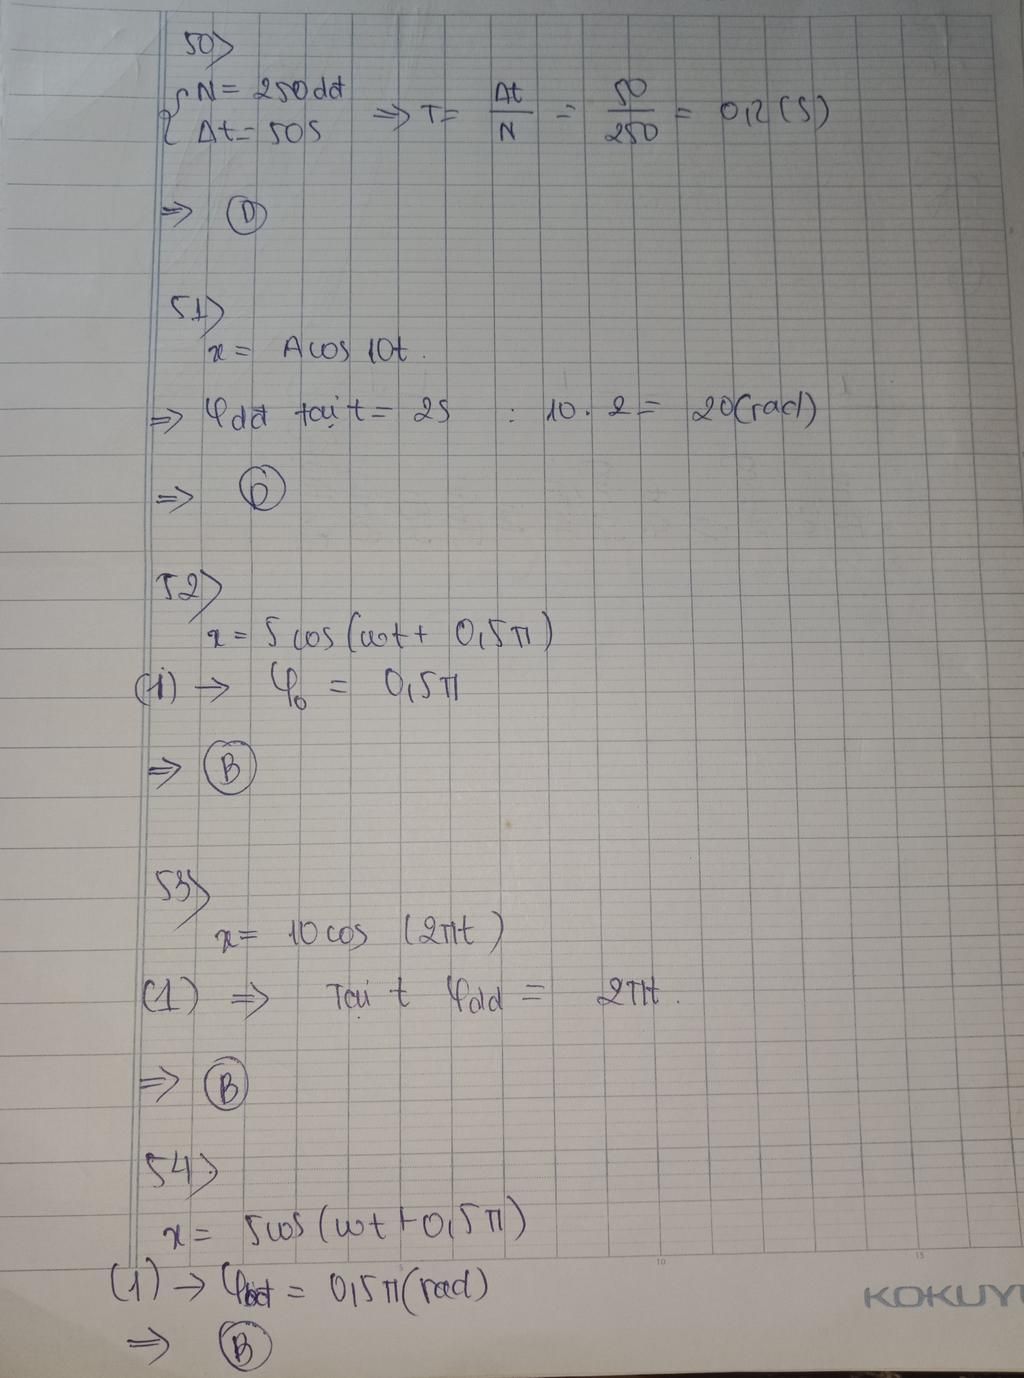 50>
{ N = 250dđ
Δt = 50s
=> T = Δt/N = 50/250 = 0,2 (s)
=> D
51>
x = A cos 10t.
=> φdđ tại t = 2s : 10. 2 = 20(rad)
=> D
52>
x = 5 cos(ωt + 0,5π)
(1) → φ₀ = 0,5π
=> B
53>
x = 10 cos (2πt)
(1) => Tại t φdđ = 2πt.
=> B
54>
x = 5cos(ωt + 0,5π)
(1) → φbđ = 0,5π(rad)
=> B
10
15
KOKUY